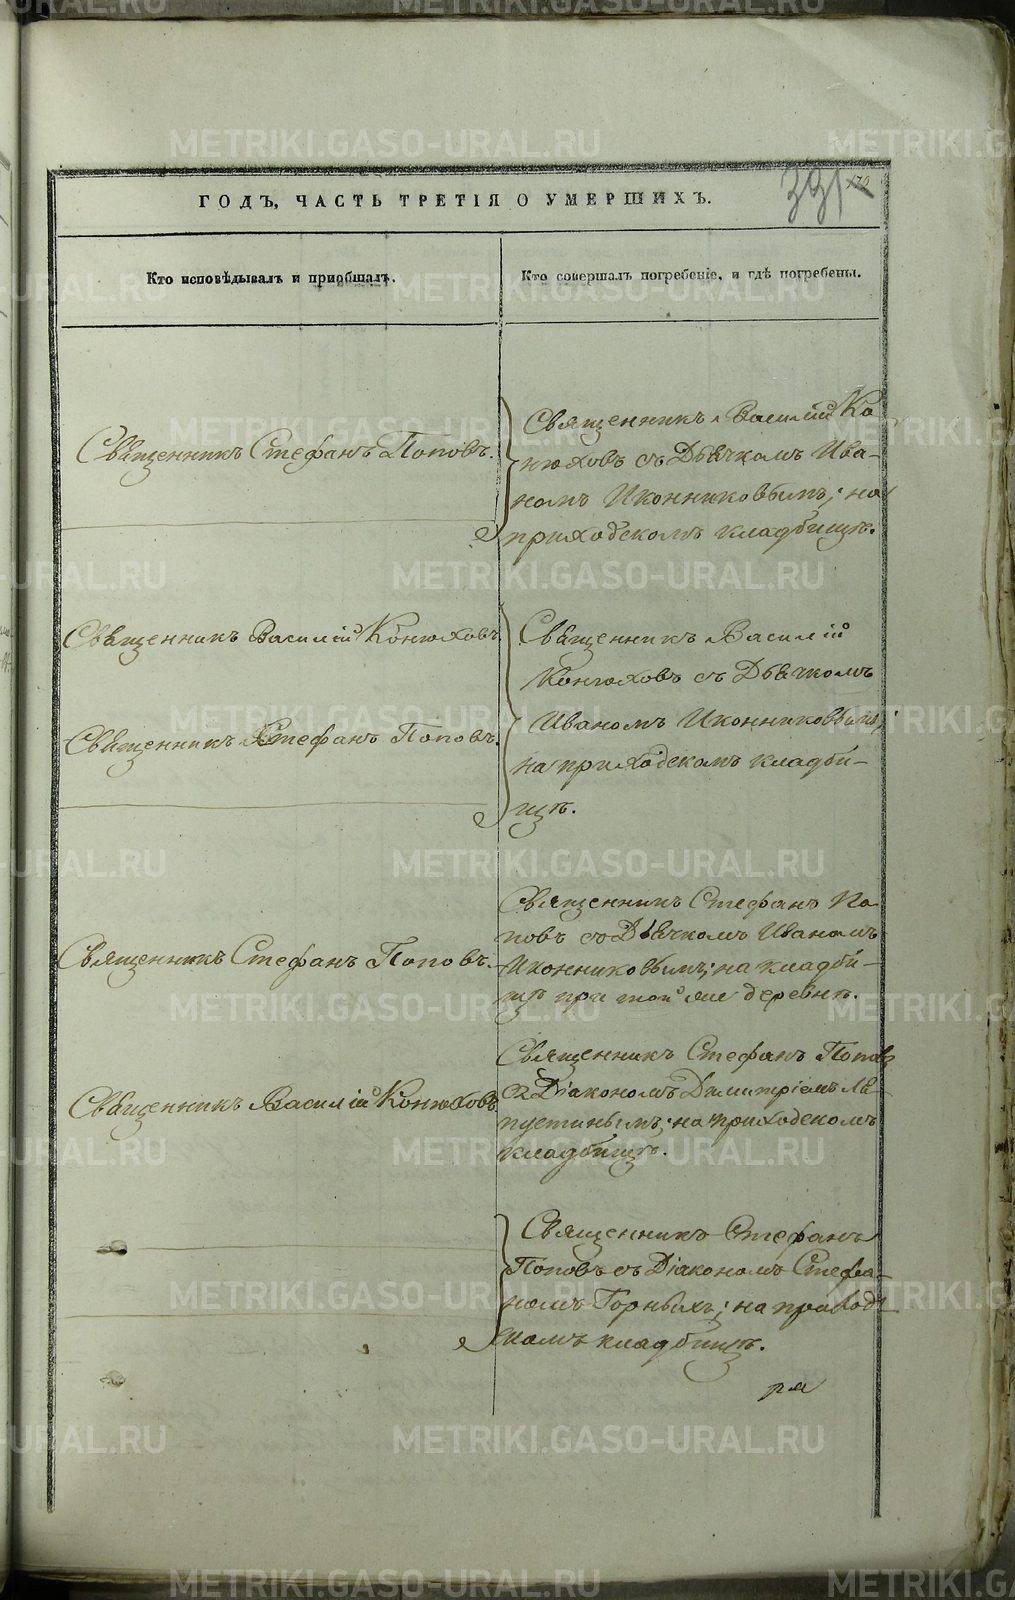 ГОДЪ, ЧАСТЬ ТРЕТІЯ О УМЕРШИХЪ.
331
Кто исповѣдывалъ и приобщалъ.
Кто совершалъ погребеніе, и гдѣ погребены.
Священникъ Стефанъ Поповъ.
Священникъ Василій Ко-
нюховъ съ Дьячкомъ Ива-
номъ Иконниковымъ; на
приходскомъ кладбищѣ.
Священникъ Василій Конюховъ
Священникъ Стефанъ Поповъ.
Священникъ Василій
Конюховъ съ Дьячкомъ
Иваномъ Иконниковымъ;
на приходскомъ кладби-
щѣ.
Священникъ Стефанъ Поповъ.
Священникъ Стефанъ По-
повъ съ Дьячкомъ Иваномъ
Иконниковымъ; на кладби-
щѣ при той же деревнѣ.
Священникъ Василій Конюховъ
Священникъ Стефанъ Поповъ
съ Діакономъ Димитріемъ Ла-
пустинымъ; на приходскомъ
кладбищѣ.
Священникъ Стефанъ
Поповъ съ Діакономъ Стефа-
номъ Горныхъ; на приход-
скомъ кладбищѣ.
METRIKI.GASO-URAL.RU